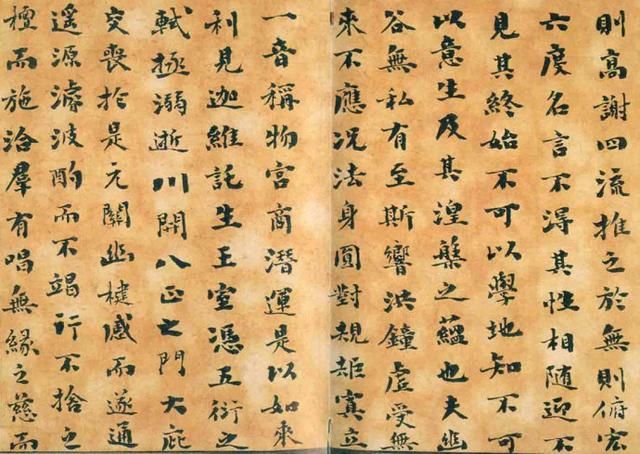 則高謝四流推之於無則俯宏
六度名言不淂其性相隨迎不
見其終始不可以學地知不可
以意生及其涅槃之蘊也夫幽
谷無私有至斯響洪鐘虛受無
來不應況法身圓對規矩冥立
一音稱物宮商潛運是以如來
利見迦維託生王室憑五衍之
軾拯溺逝川開八正之門大庇
交喪於是元關幽楗感而遂通
遥源濬波酌而不竭行不捨之
檀而施洽羣有唱無緣之慈而